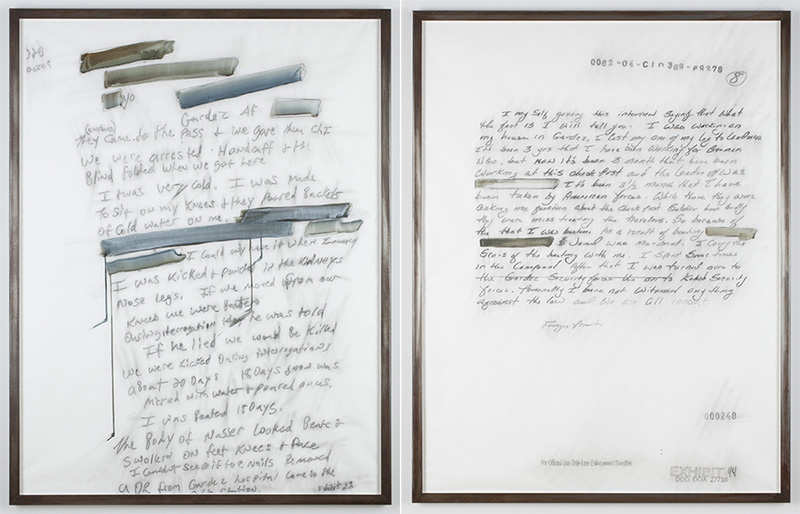 Gardez
they came do the Pass & we gave them chI
We were arrested. Handcuff &
Blind folded when we got here
I twas very cold. I was made
To sit on my Knees & they Poured Buckets
of Cold water on me.
I could only have it when
I was Kicked & Punched in the Kidneys
Nose legs. If we moved from our
Knees we were Beaten
During Interrogation he was told
If he lied we would Be Killed
We were Kicked During interrogations
about 20 Days 18 Days Snow was
Mixed with water & poured on us.
I was Beated 18 Days.
The Body of Nasser Looked Beat &
Swollen on feet Knees & Face
I couldn't see if toe Nails Removed
a DR from Gardez hospital came to the
0062-04-CID369-69278
8
I my Self giving this interview Saying that what
the fact is I will tell you. I was working on
my house in Gardez, I lost my one of my leg to Landmine
I've been 3 yrs that I have been working for German
NGO. but now its been 3 month that have been
working at this check Post and the Leader of was
I it's been 3½ month that I have
been taken by American forces. While there they were
asking me question about the Check Post Soldier how badly
they were miss treating the travelers. So because of
the that I was beatin. As a result of beating
& Jamal was Murdered. I Carry the
Scars of the beating with me. I Spent Some times
in the Compound after that I was turned over to
the Gardez Security force
force. Personally I have not Witnessed any thing
against the law and We are all innocent.
Finger Print.
000268
For Official Use Only-Law Enforcement Sensitive
EXHIBIT 44
DOD DOA 27738